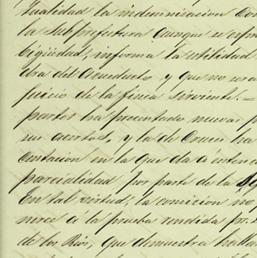 tualidad la indemnizacion con
la Subprefectura aunque se
bigüedad, informa la utilidad
obra del Acueducto y que no
juicio de la finca sirviente. —
partes ha presentado nuevas
y la de
en la que da a
parcialidad por parte de la
En tal virtud, la comision no
merece a la prueba rendida por
de los Rios, que demuestra